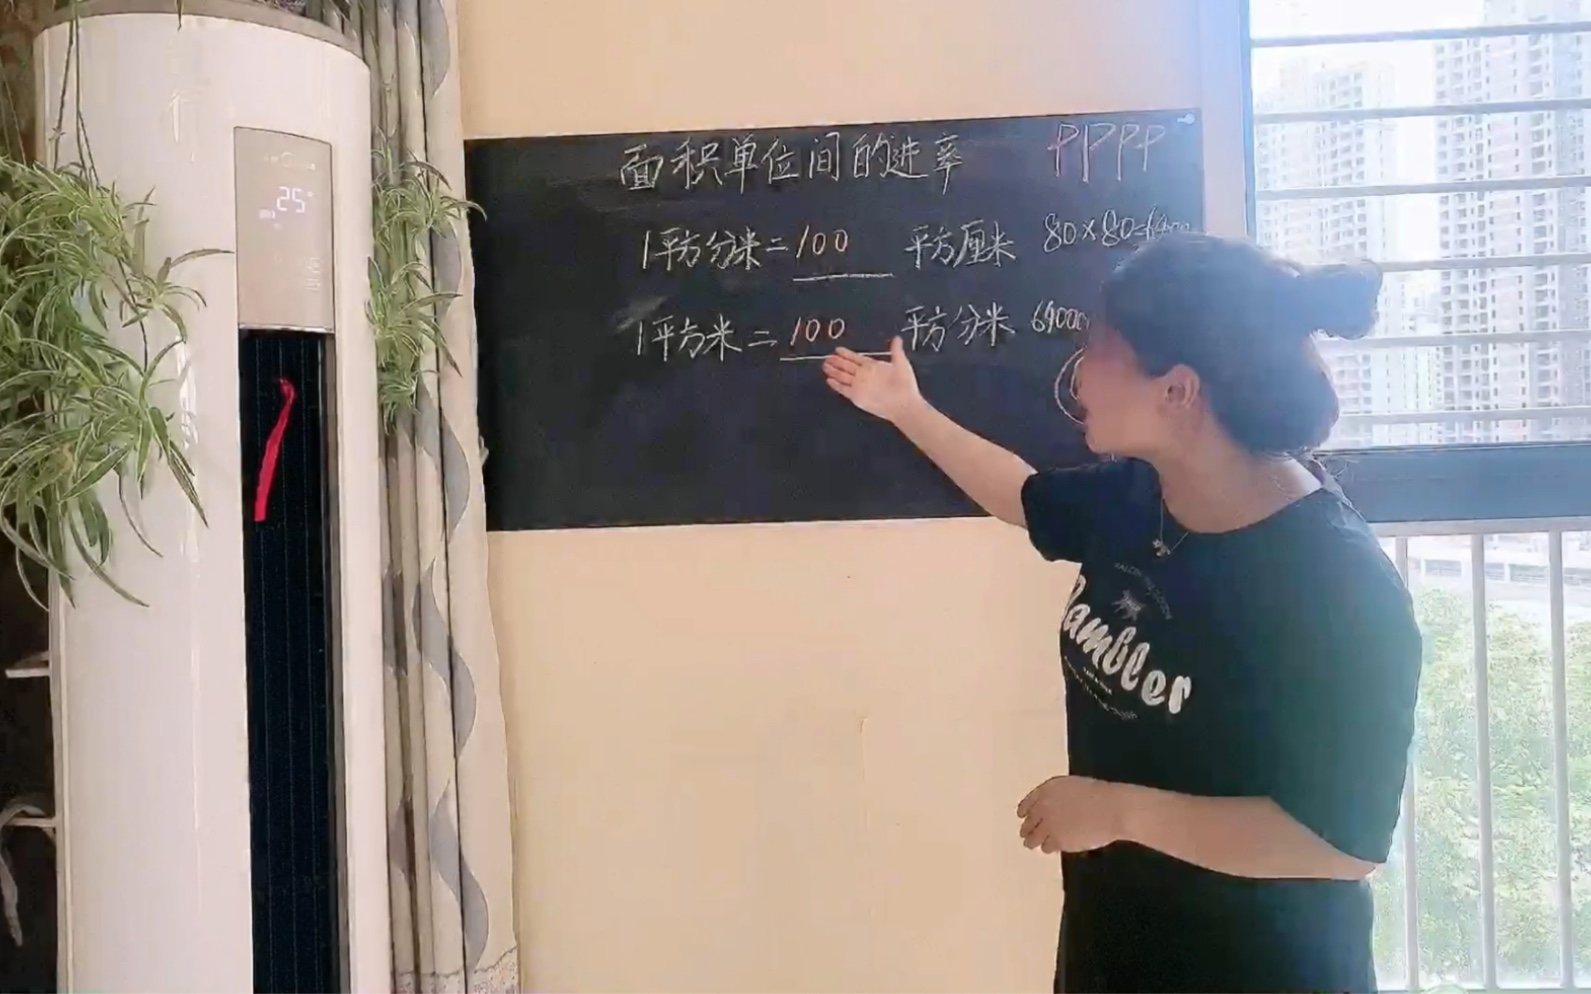 面积单位间的进率 PPPP
1平方分米=100 平方厘米 80×80=6400
1平方米=100 平方分米
25°
Rambler